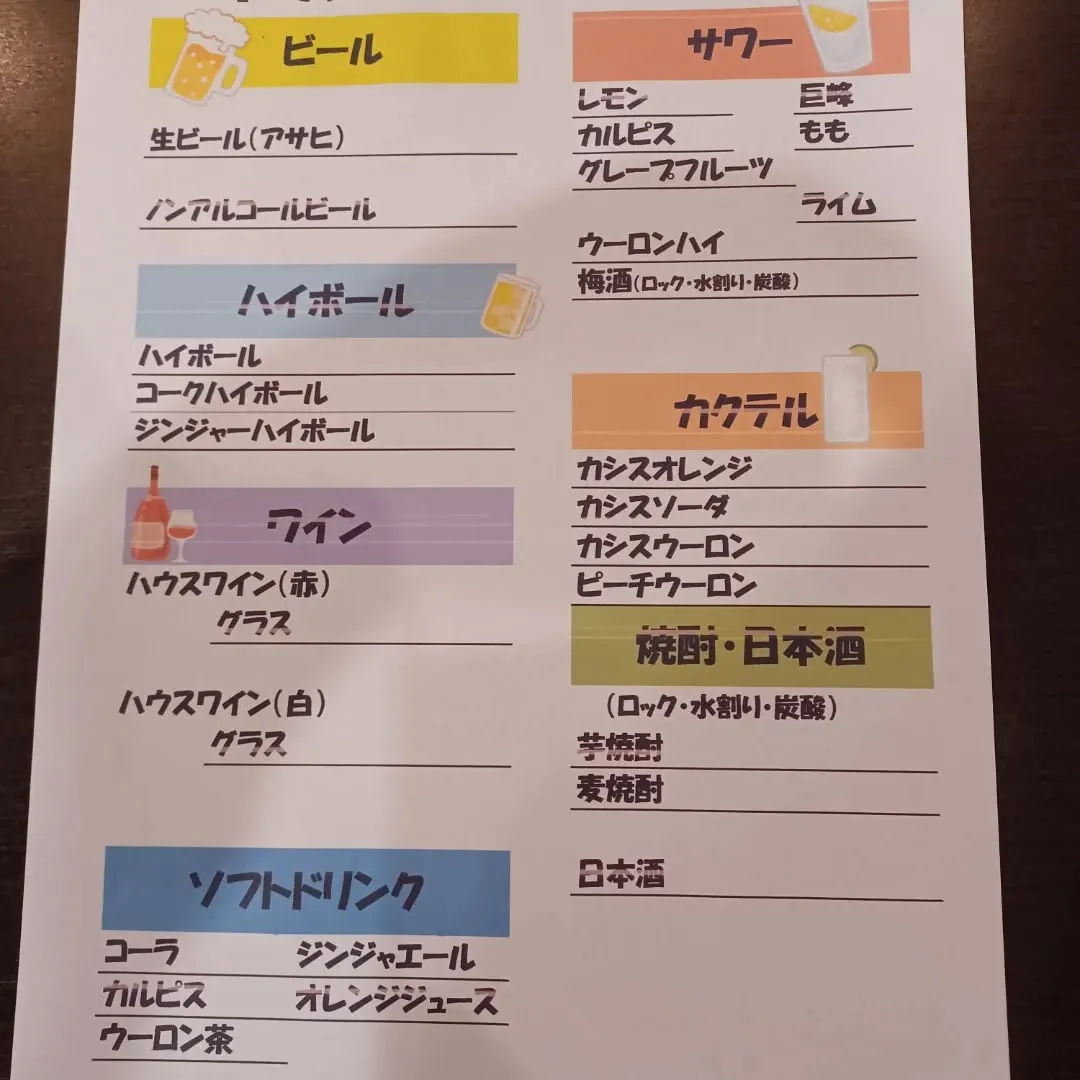 ビール
生ビール(アサヒ)
ノンアルコールビール
ハイボール
ハイボール
コークハイボール
ジンジャーハイボール
ワイン
ハウスワイン(赤)
グラス
ハウスワイン(白)
グラス
ソフトドリンク
コーラ ジンジャエール
カルピス オレンジジュース
ウーロン茶
サワー
レモン 巨峰
カルピス もも
グレープフルーツ
ライム
ウーロンハイ
梅酒(ロック・水割り・炭酸)
カクテル
カシスオレンジ
カシスソーダ
カシスウーロン
ピーチウーロン
焼酎・日本酒
(ロック・水割り・炭酸)
芋焼酎
麦焼酎
日本酒